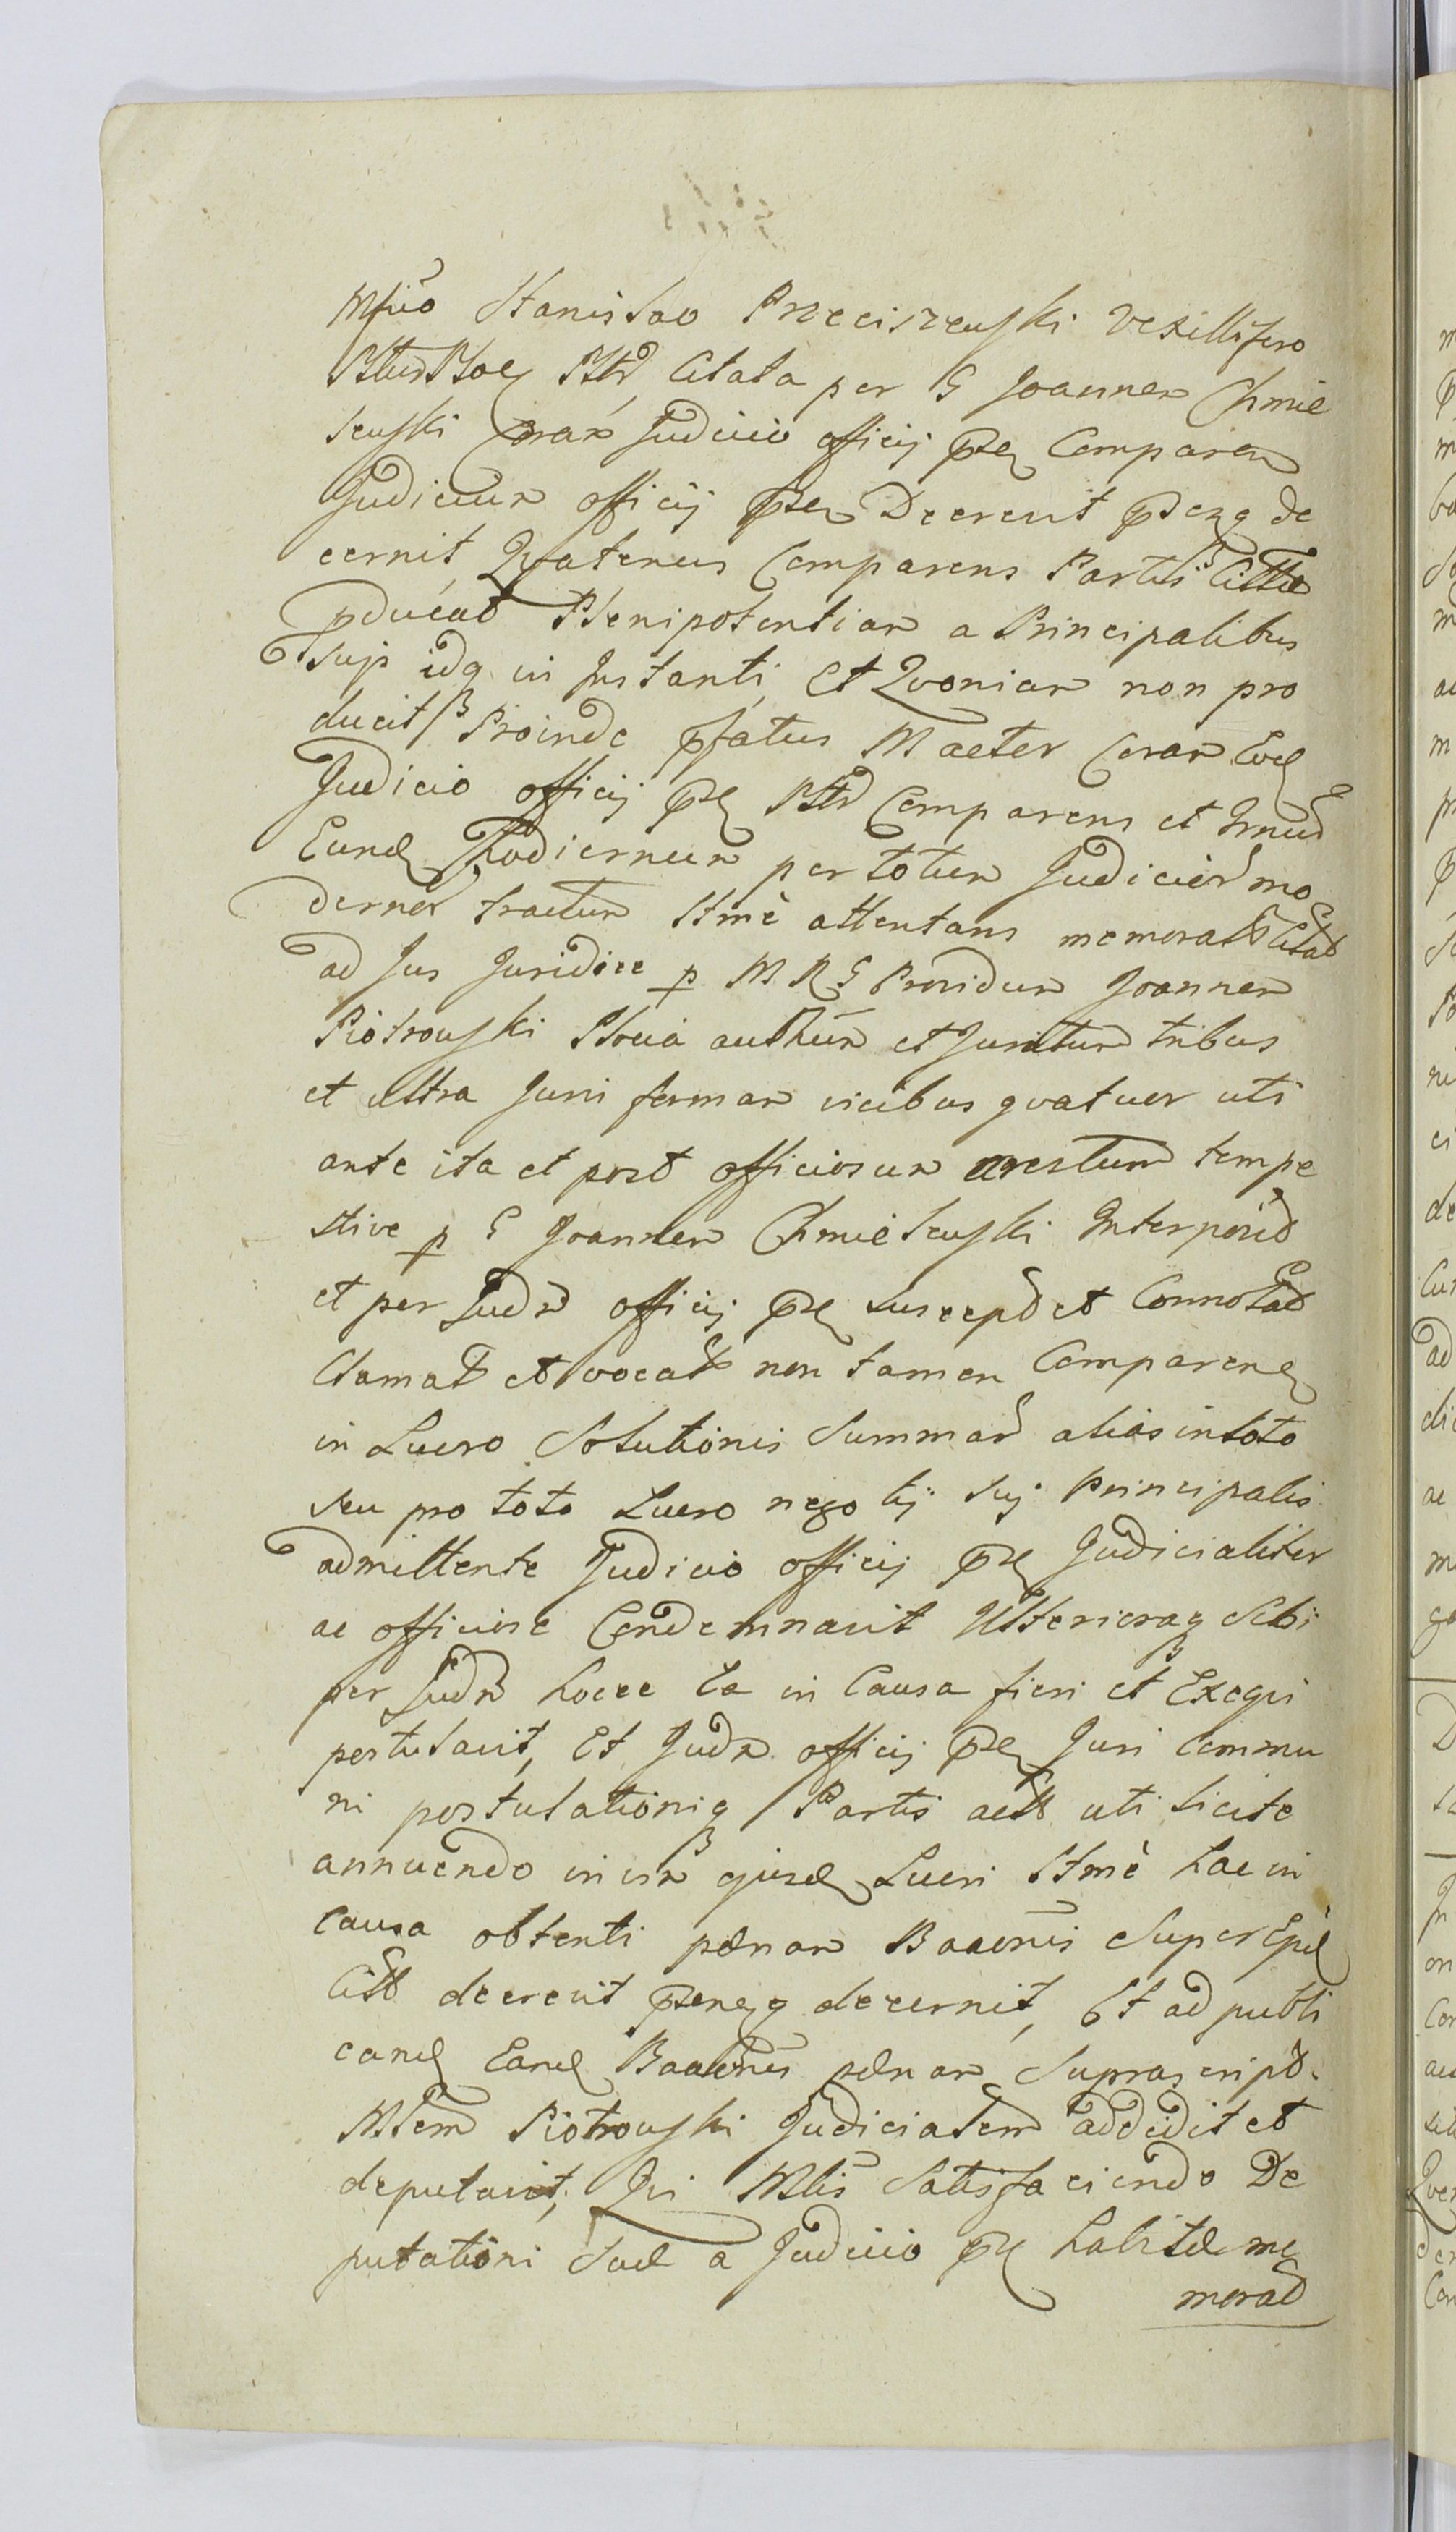 Mfico Stanislao Przeciszewski Vexillifero
Citata per G Joannem Chmie
lewski Coram Judicio officij pñ Comparen
Judicium officij pñ Decrevit pñ de
cernit, Quatenus Comparens Partis Cittæ
pducat Plenipotentiam a Principalibus
suis idq in Instanti, Et Quoniam non pro
ducit Proinde pfatus M aeter Coram
Judicio officij pñ Comparens et
Eund Hodiernum per totum Judicior mo
dernor tractum ltme attentans memorat Citat
ad Jus Juridice p M R G Providum Joannem
Piotrowski authen et Juratum tribus
et ultra Juri formam vicibus quatuor uti
ante ita et post officiosum arestum tempe
stive p G Joannem Chmielewski Interposit
et per Judm officij pñ suscept et Connotat
Clamat et vocat non tamen Comparen
in Lucro Solutionis Summar alias in toto
seu pro toto Lucro negotij sui Principalis
admittente Judicio officij pñ Judicialiter
ac officiose Condemnavit Ulterioraq Sibi
per Judm hocce Ea in Causa fieri et Exequi
postulavit, Et Judm officij pñ Juri Commu
ni postulationiq Partis act uti licite
annuendo in vim ejusd Lucri ltme hac in
Causa obtenti pænam Banonis Super
Citt decrevit decernit, Et ad publi
cand Eand pænam Suprascript
Mlem Piotrowski Judicialem addidit et
deputavit, Qui Mlis Satisfaciendo De
putationi Suæ a Judicio pñ habitæ me
morat